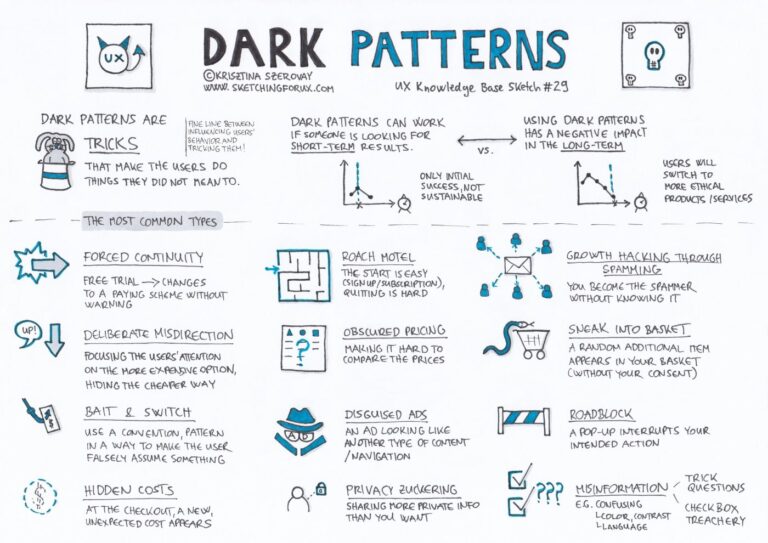 UX
DARK PATTERNS
©KRISZTINA SZEROVAY
WWW.SKETCHINGFORUX.COM
UX Knowledge Base Sketch #29
DARK PATTERNS ARE
TRICKS
THAT MAKE THE USERS DO
THINGS THEY DID NOT MEAN TO.
FINE LINE BETWEEN
INFLUENCING USERS'
BEHAVIOR AND
TRICKING THEM!
DARK PATTERNS CAN WORK
IF SOMEONE IS LOOKING FOR
SHORT-TERM RESULTS.
ONLY INITIAL
SUCCESS, NOT
SUSTAINABLE
VS.
USING DARK PATTERNS
HAS A NEGATIVE IMPACT
IN THE LONG-TERM
USERS WILL
SWITCH TO
MORE ETHICAL
PRODUCTS/SERVICES
THE MOST COMMON TYPES
FORCED CONTINUITY
FREE TRIAL → CHANGES
TO A PAYING SCHEME WITHOUT
WARNING
ROACH MOTEL
THE START IS EASY
(SIGN UP/SUBSCRIPTION),
QUITING IS HARD
GROWTH HACKING THROUGH
SPAMMING
YOU BECOME THE SPAMMER
WITHOUT KNOWING IT
UP!
DELIBERATE MISDIRECTION
FOCUSING THE USERS' ATTENTION
ON THE MORE EXPENSIVE OPTION,
HIDING THE CHEAPER WAY
?
OBSCURED PRICING
MAKING IT HARD TO
COMPARE THE PRICES
SNEAK INTO BASKET
A RANDOM ADDITIONAL ITEM
APPEARS IN YOUR BASKET
(WITHOUT YOUR CONSENT)
BAIT & SWITCH
USE A CONVENTION, PATTERN
IN A WAY TO MAKE THE USER
FALSELY ASSUME SOMETHING
AD
DISGUISED ADS
AN AD LOOKING LIKE
ANOTHER TYPE OF CONTENT
/NAVIGATION
ROADBLOCK
A POP-UP INTERRUPTS YOUR
INTENDED ACTION
HIDDEN COSTS
AT THE CHECKOUT, A NEW,
UNEXPECTED COST APPEARS
PRIVACY ZUCKERING
SHARING MORE PRIVATE INFO
THAN YOU WANT
???
MISINFORMATION
E.G. CONFUSING
COLOR, CONTRAST
LANGUAGE
TRICK
QUESTIONS
CHECKBOX
TREACHERY